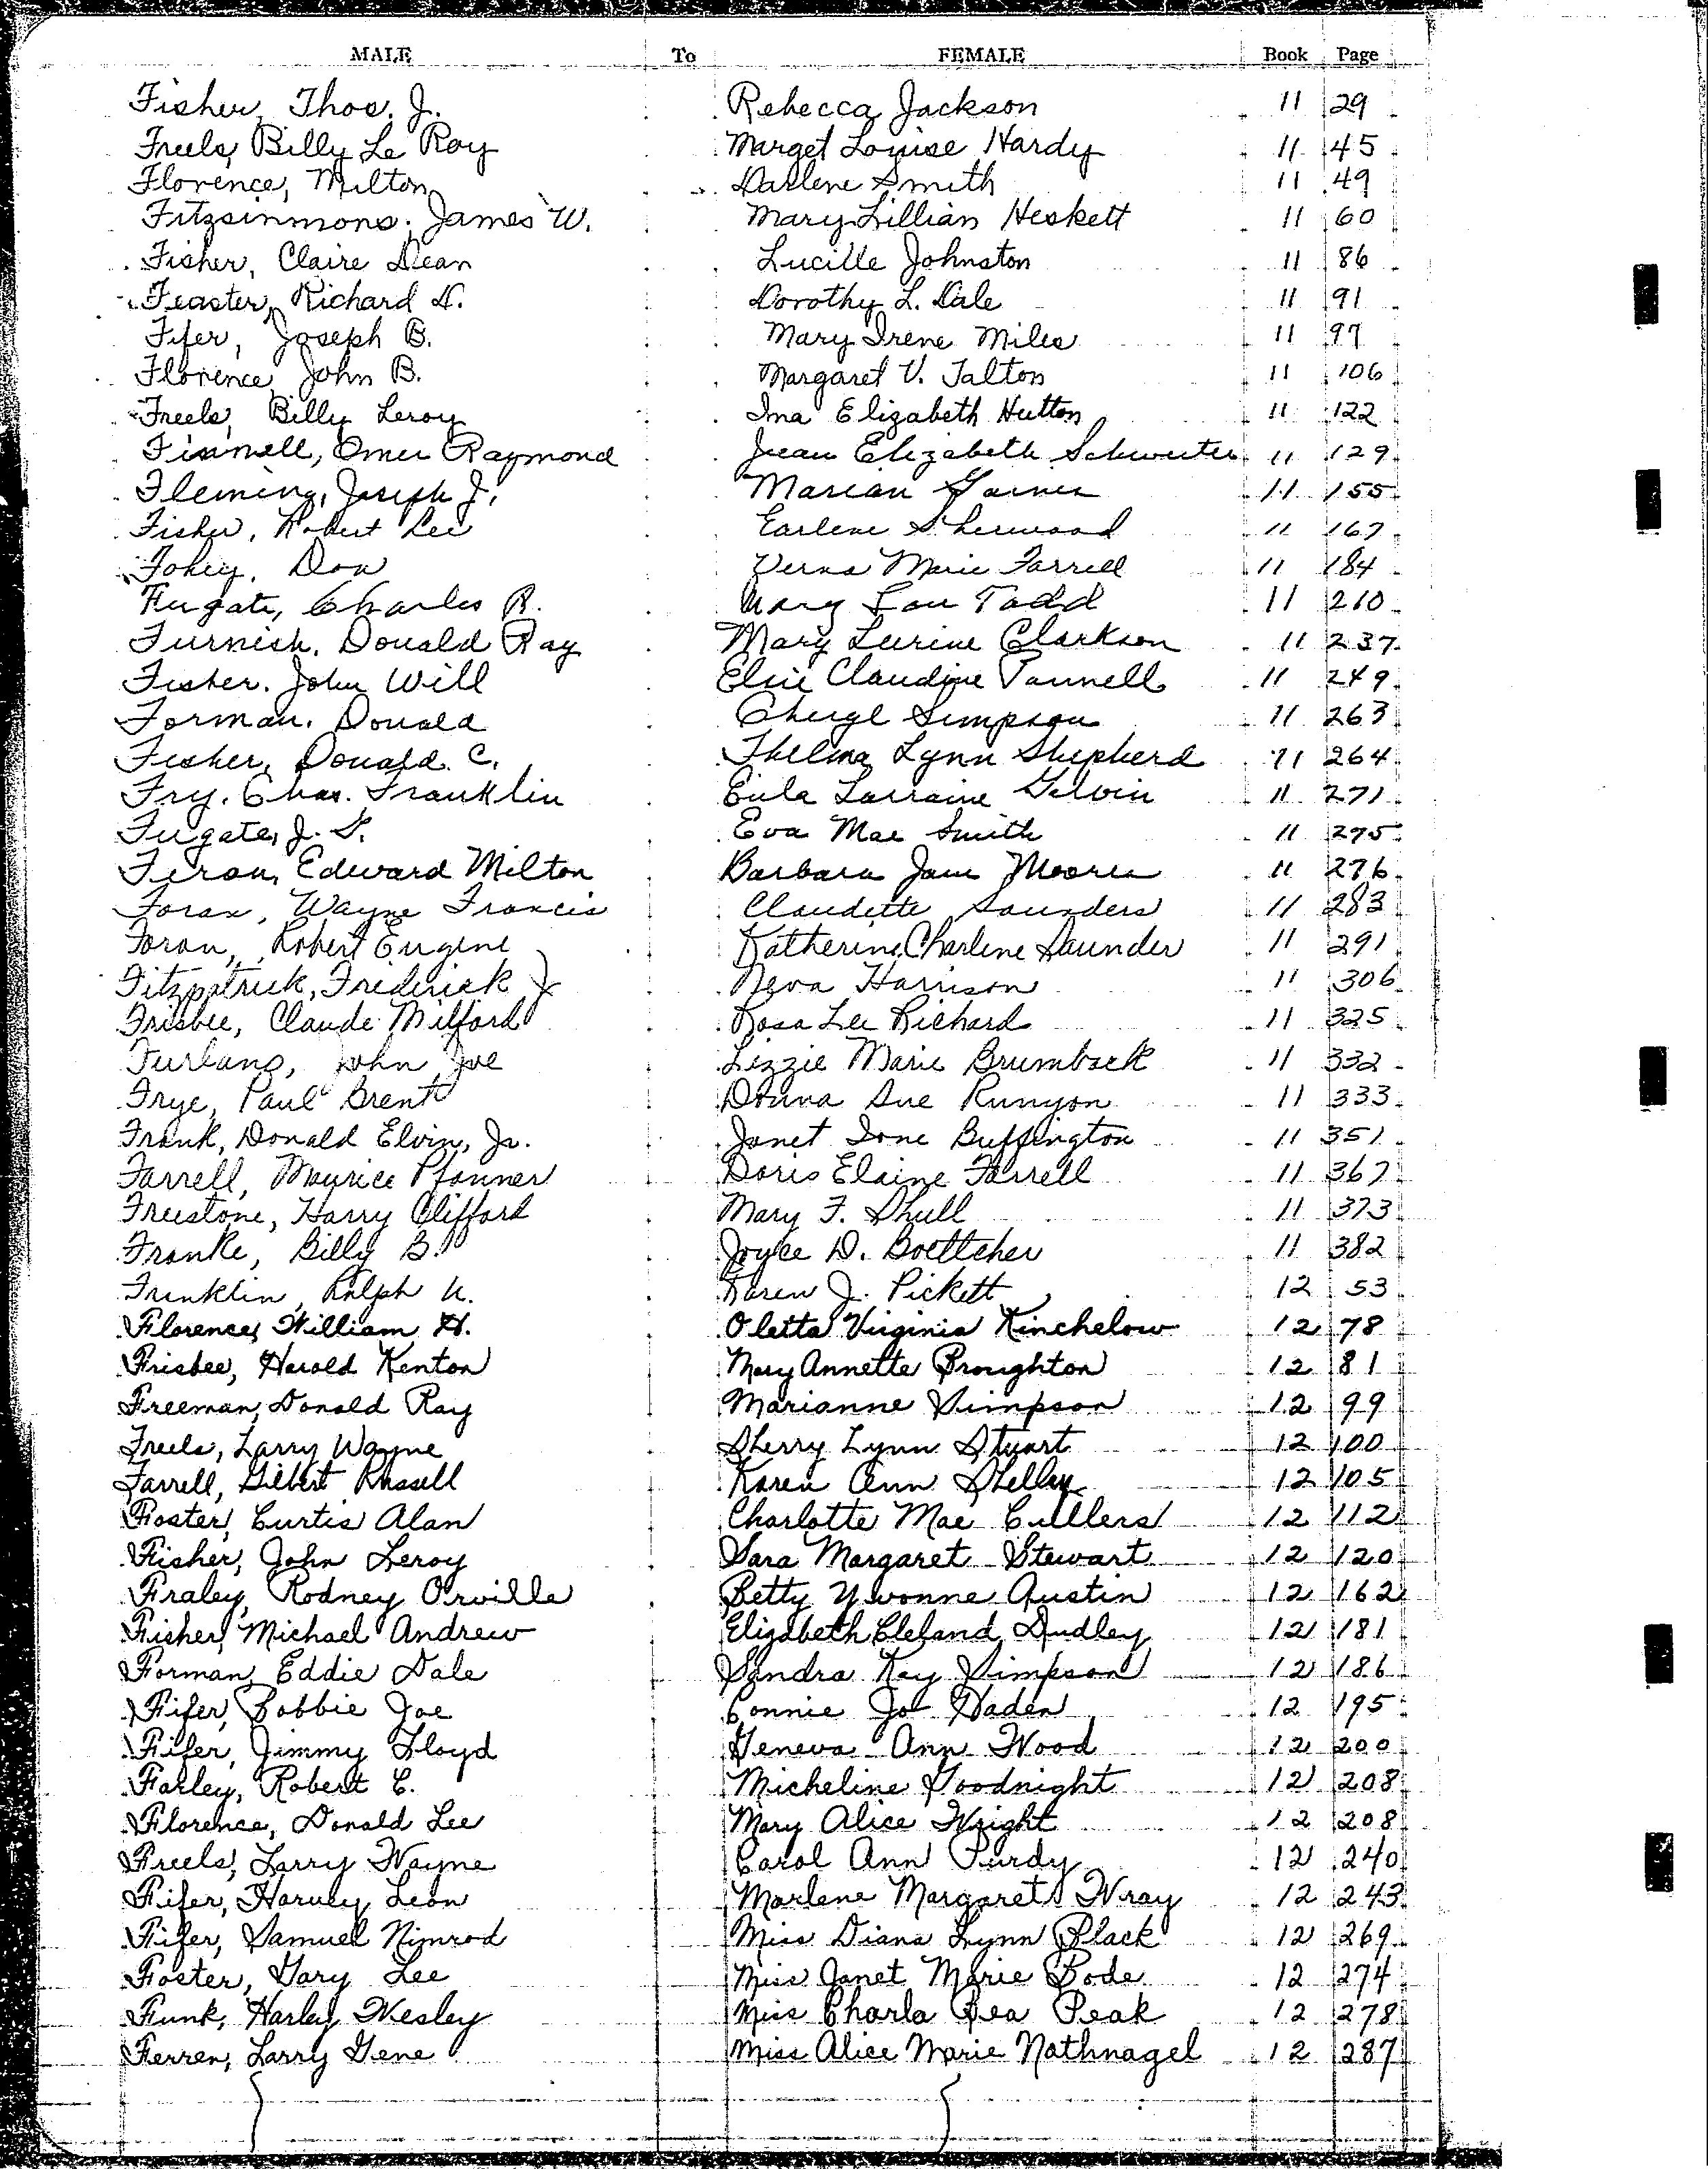 MALE To FEMALE Book Page
Fisher, Thos. J. Rebecca Jackson 11 29
Freels, Billy Le Roy Marget Louise Hardy 11 45
Florence, Milton Darlene Smith 11 49
Fitzsimmons, James W. Mary Lillian Heskett 11 60
Fisher, Claire Dean Lucille Johnston 11 86
Feaster, Richard D. Dorothy L. Dale 11 91
Fifer, Joseph B. Mary Irene Miles 11 97
Florence, John B. Margaret V. Talton 11 106
Freels, Billy Leroy Ima Elizabeth Hutton 11 122
Finnell, Omer Raymond Jean Elizabeth 11 129
Fleming, Joseph J. Marian 11 155
Fisher, Robert Lee Earlene Sherwood 11 167
Don Verna Marie Farrell 11 184
Fugate, Charles R. Mary Lou Todd 11 210
Furnish, Donald Ray Mary Lurine Clarkson 11 237
Fisher, John Will Elsie Claudine Pannell 11 249
Forman, Donald Cheryl Simpson 11 263
Fisher, Donald C. Thelma Lynn Shepherd 11 264
Fry, Chas. Franklin Eula Larraine Galvin 11 271
Fugate, J. Eva Mae Smith 11 275
Edward Milton Barbara Jane 11 276
Foran, Wayne Francis Claudette Saunders 11 283
Foran, Robert Eugene Katherine Charlene Saunder 11 291
Fitzpatrick, Frederick J Neva Harrison 11 306
Frisbee, Claude Milford Rosa Lee Richard 11 325
Furlano, John Joe Lizzie Marie Brumback 11 332
Frye, Paul Brent Donna Sue Runyon 11 333
Frank, Donald Elvin, Jr. Janet Ione Buffington 11 351
Farrell, Maurice Pfanner Doris Elaine Farrell 11 367
Freestone, Harry Clifford Mary F. Shull 11 373
Franke, Billy B. Joyce D. Boettcher 11 382
Franklin, Ralph U. Karen J. Pickett 12 53
Florence, William H. Oletta Virginia Kinchelow 12 78
Frisbee, Harold Kenton Mary Annette Broughton 12 81
Freeman, Donald Ray Marianne Simpson 12 99
Freels, Larry Wayne Sherry Lynn Stuart 12 100
Farrell, Gilbert Russell Karen Ann Shelley 12 105
Foster, Curtis Alan Charlotte Mae Cullers 12 112
Fisher, John Leroy Sara Margaret Stewart 12 120
Fraley, Rodney Orville Betty Yvonne Austin 12 162
Fisher, Michael Andrew Elizabeth Cleland Dudley 12 181
Forman, Eddie Dale Sandra Kay Simpson 12 186
Fifer, Bobbie Joe Connie Jo Haden 12 195
Fifer, Jimmy Floyd Geneva Ann Wood 12 200
Farley, Robert C. Micheline Goodnight 12 208
Florence, Donald Lee Mary Alice Wright 12 208
Freels, Larry Wayne Carol Ann Purdy 12 240
Fifer, Harvey Leon Marlene Margaret Wray 12 243
Fifer, Samuel Nimrod Miss Diana Lynn Plack 12 269
Foster, Gary Lee Miss Janet Marie Bode 12 274
Funk, Harley Wesley Miss Charla Bea Peak 12 278
Ferren, Larry Gene Miss Alice Marie Nathnagel 12 287